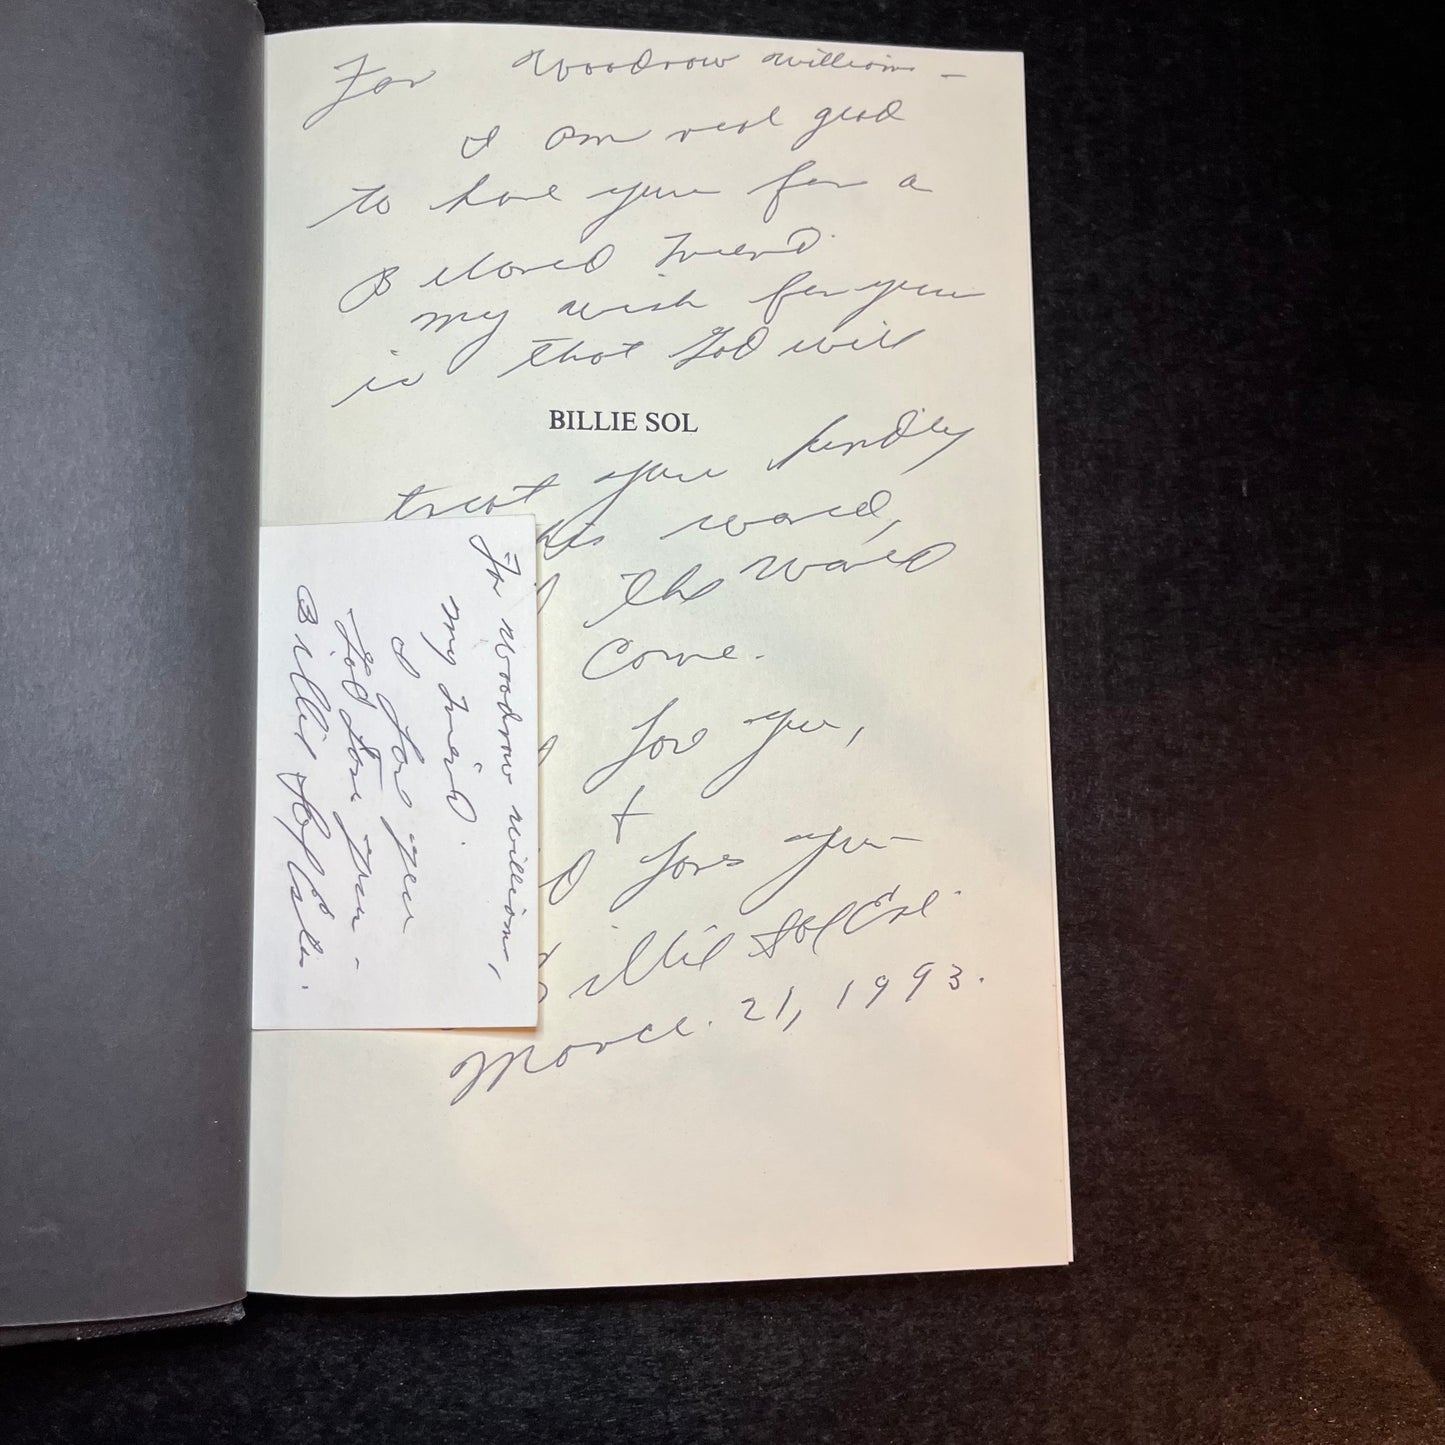 For Woodrow William -
I am real glad
to have you for a
Beloved Friend.
my wish for you
is that God will
BILLIE SOL
treat you kindly
this world,
the world
come.
love you,
+
loves you -
Billie Sol Este
March. 21, 1993.
For Woodrow William,
my Friend.
I love you
God love you -
Billie Sol Estes.